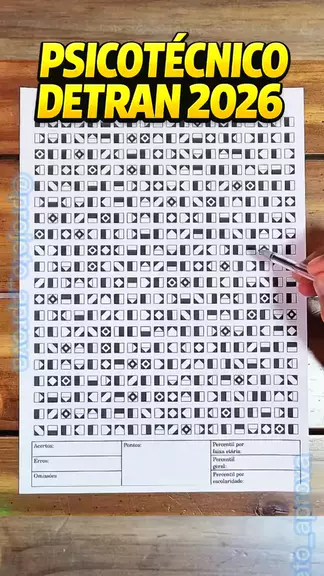 PSICOTÉCNICO
DETRAN 2026
Acertos:
Erros:
Omissões
Pontos:
Percentil por
faixa etária:
Percentil
geral:
Percentil por
escolaridade: